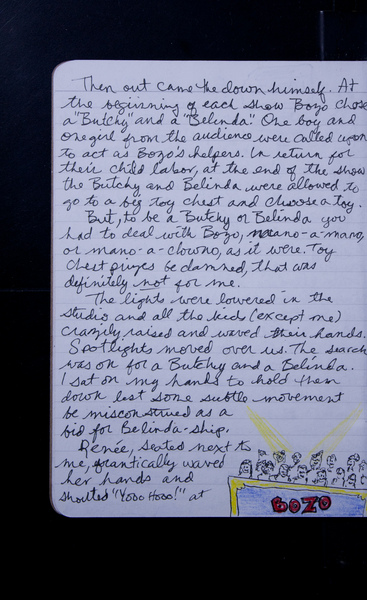 Then out came the clown himself. At
the beginning of each show Bozo chose
a "Butchy" and a "Belinda". One boy and
one girl from the audience were called upon
to act as Bozo's helpers. In return for
their child labor, at the end of the show
the Butchy and Belinda were allowed to
go to a big toy chest and choose a toy.
But, to be a Butchy or Belinda you
had to deal with Bozo, mano-a-mano,
or mano-a-clowno, as it were. Toy
chest prizes be damned, that was
definitely not for me.
The lights were lowered in the
studio and all the kids (except me)
crazily raised and waved their hands.
Spotlights moved over us. The search
was on for a Butchy and a Belinda.
I sat on my hands to hold them
down lest some subtle movement
be misconstrued as a
bid for Belinda-ship.
Renée, seated next to
me, frantically waved
her hands and
shouted "Yooo Hooo!" at
BOZO